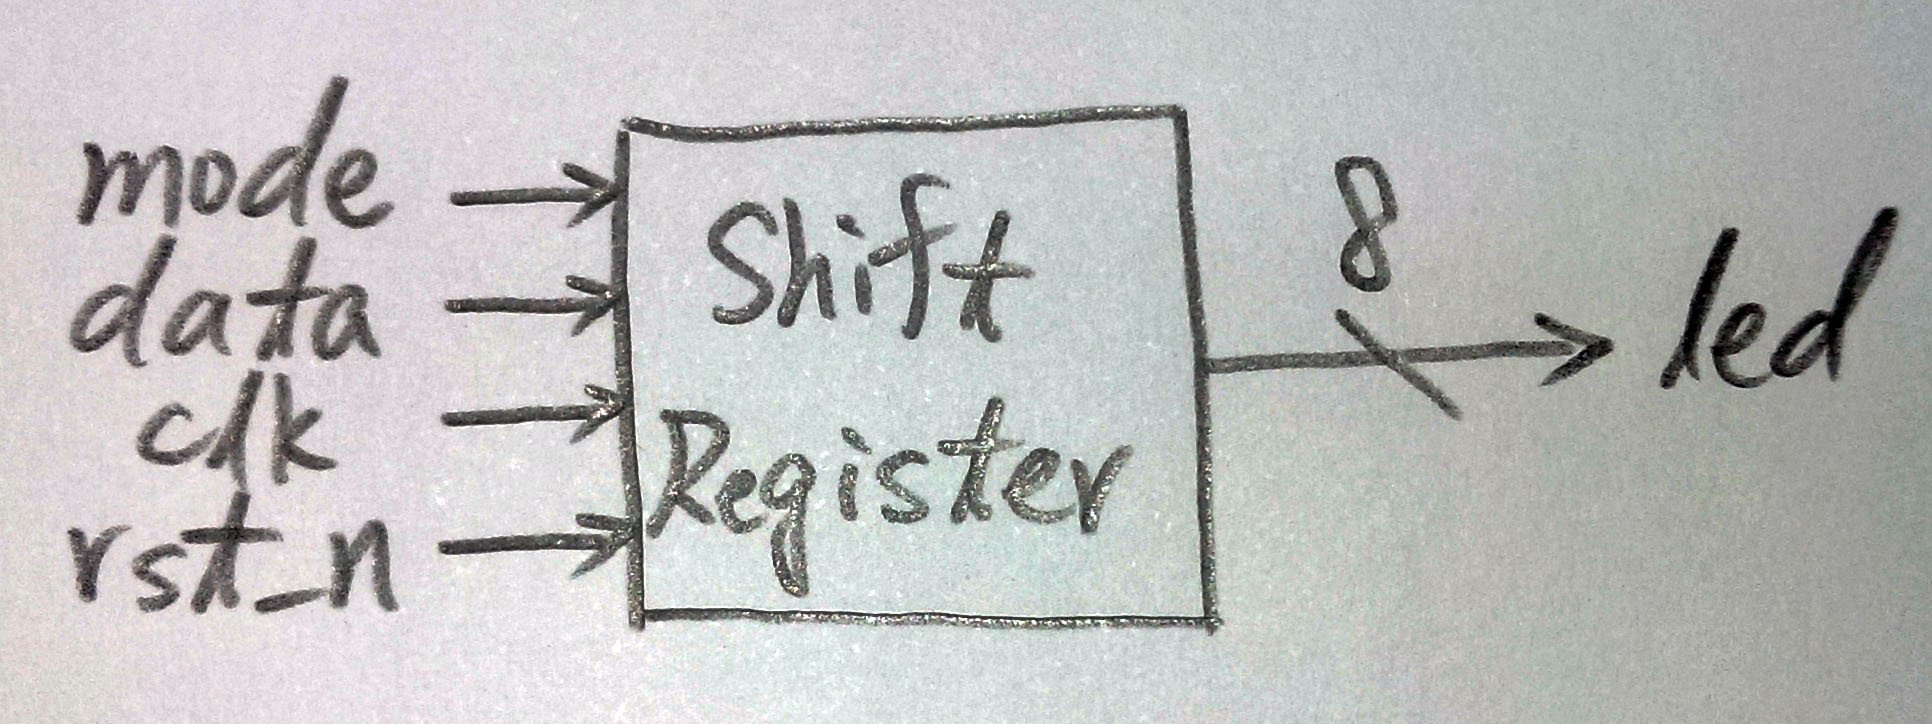 mode
data
clk
rst_n
Shift
Register
8
led